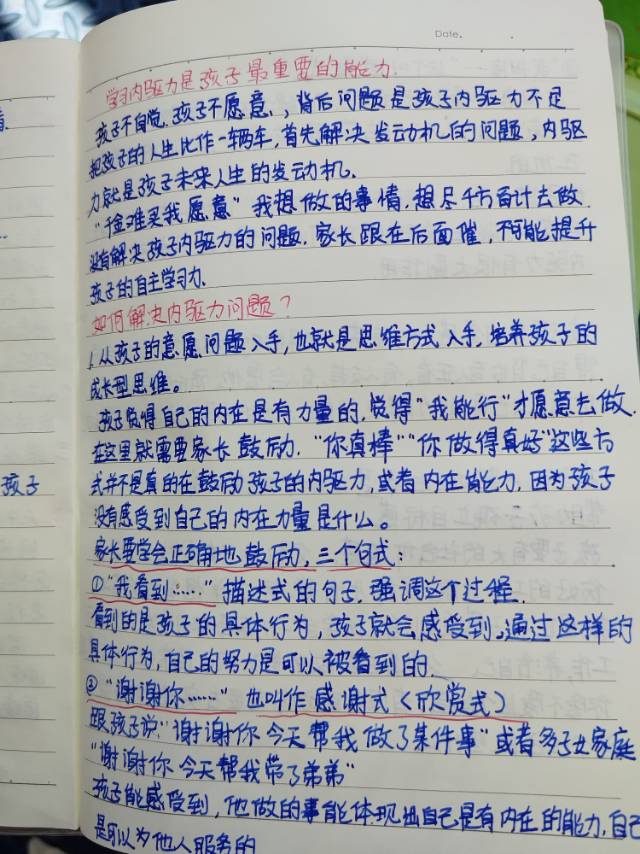 Date.
学习内驱力是孩子最重要的能力.
孩子不自觉.孩子不愿意,,背后问题是孩子内驱力不足
把孩子的人生比作一辆车,首先解决发动机的问题,内驱
力就是孩子未来人生的发动机.
"千金难买我愿意"我想做的事情,想尽千方百计去做.
没有解决孩子内驱力的问题.家长跟在后面催,不可能提升
孩子的自主学习力.
如何解决内驱力问题?
1.从孩子的意愿问题入手,也就是思维方式入手,培养孩子的
成长型思维。
孩子觉得自己的内在是有力量的,觉得"我能行"才愿意去做.
在这里就需要家长鼓励."你真棒""你做得真好"这些方
式并不是真的在鼓励孩子的内驱力,或者内在能力,因为孩子
孩子
没有感受到自己的内在力量是什么。
家长要学会正确地鼓励,三个句式:
①"我看到……"描述式的句子.强调这个过程.
看到的是孩子的具体行为,孩子就会感受到。通过这样的
具体行为,自己的努力是可以被看到的.
②"谢谢你……"也叫作感谢式(欣赏式)
跟孩子说:"谢谢你今天帮我做了某件事"或者多子女家庭
"谢谢你今天帮我带了弟弟"
孩子能感受到,他做的事能体现出自己是有内在的能力,自己
是可以为他人服务的